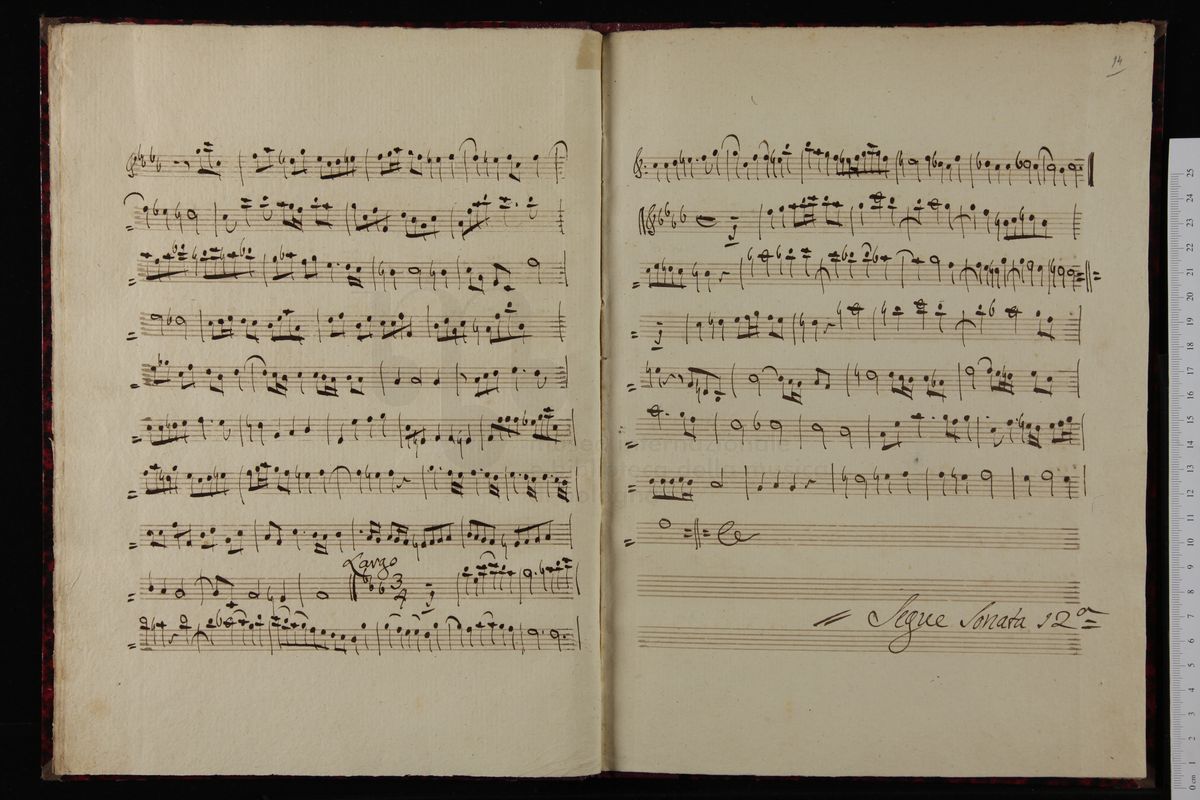 Largo
3
4
14
Segue Sonata 12a
25
24
23
22
21
20
19
18
17
16
15
14
13
12
11
10
9
8
7
6
5
4
3
2
1
0 cm